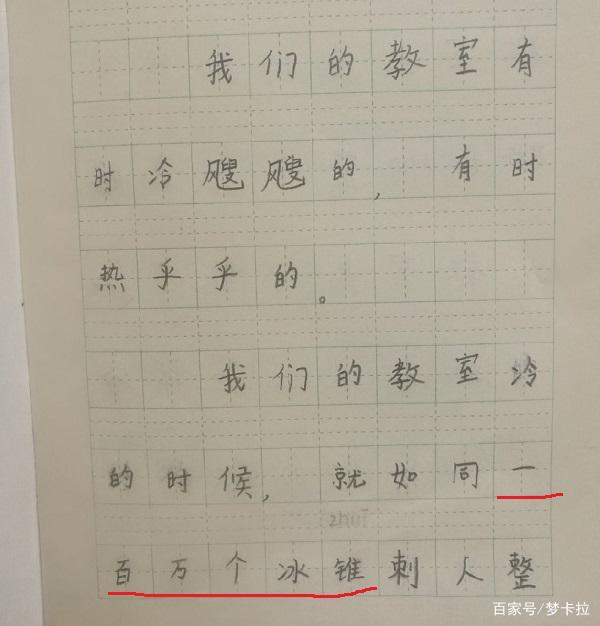 我们的教室有
时冷飕飕的，有时
热乎乎的。
我们的教室冷
的时候，就如同一
zhuī
百万个冰锥刺人整
百家号/梦卡拉